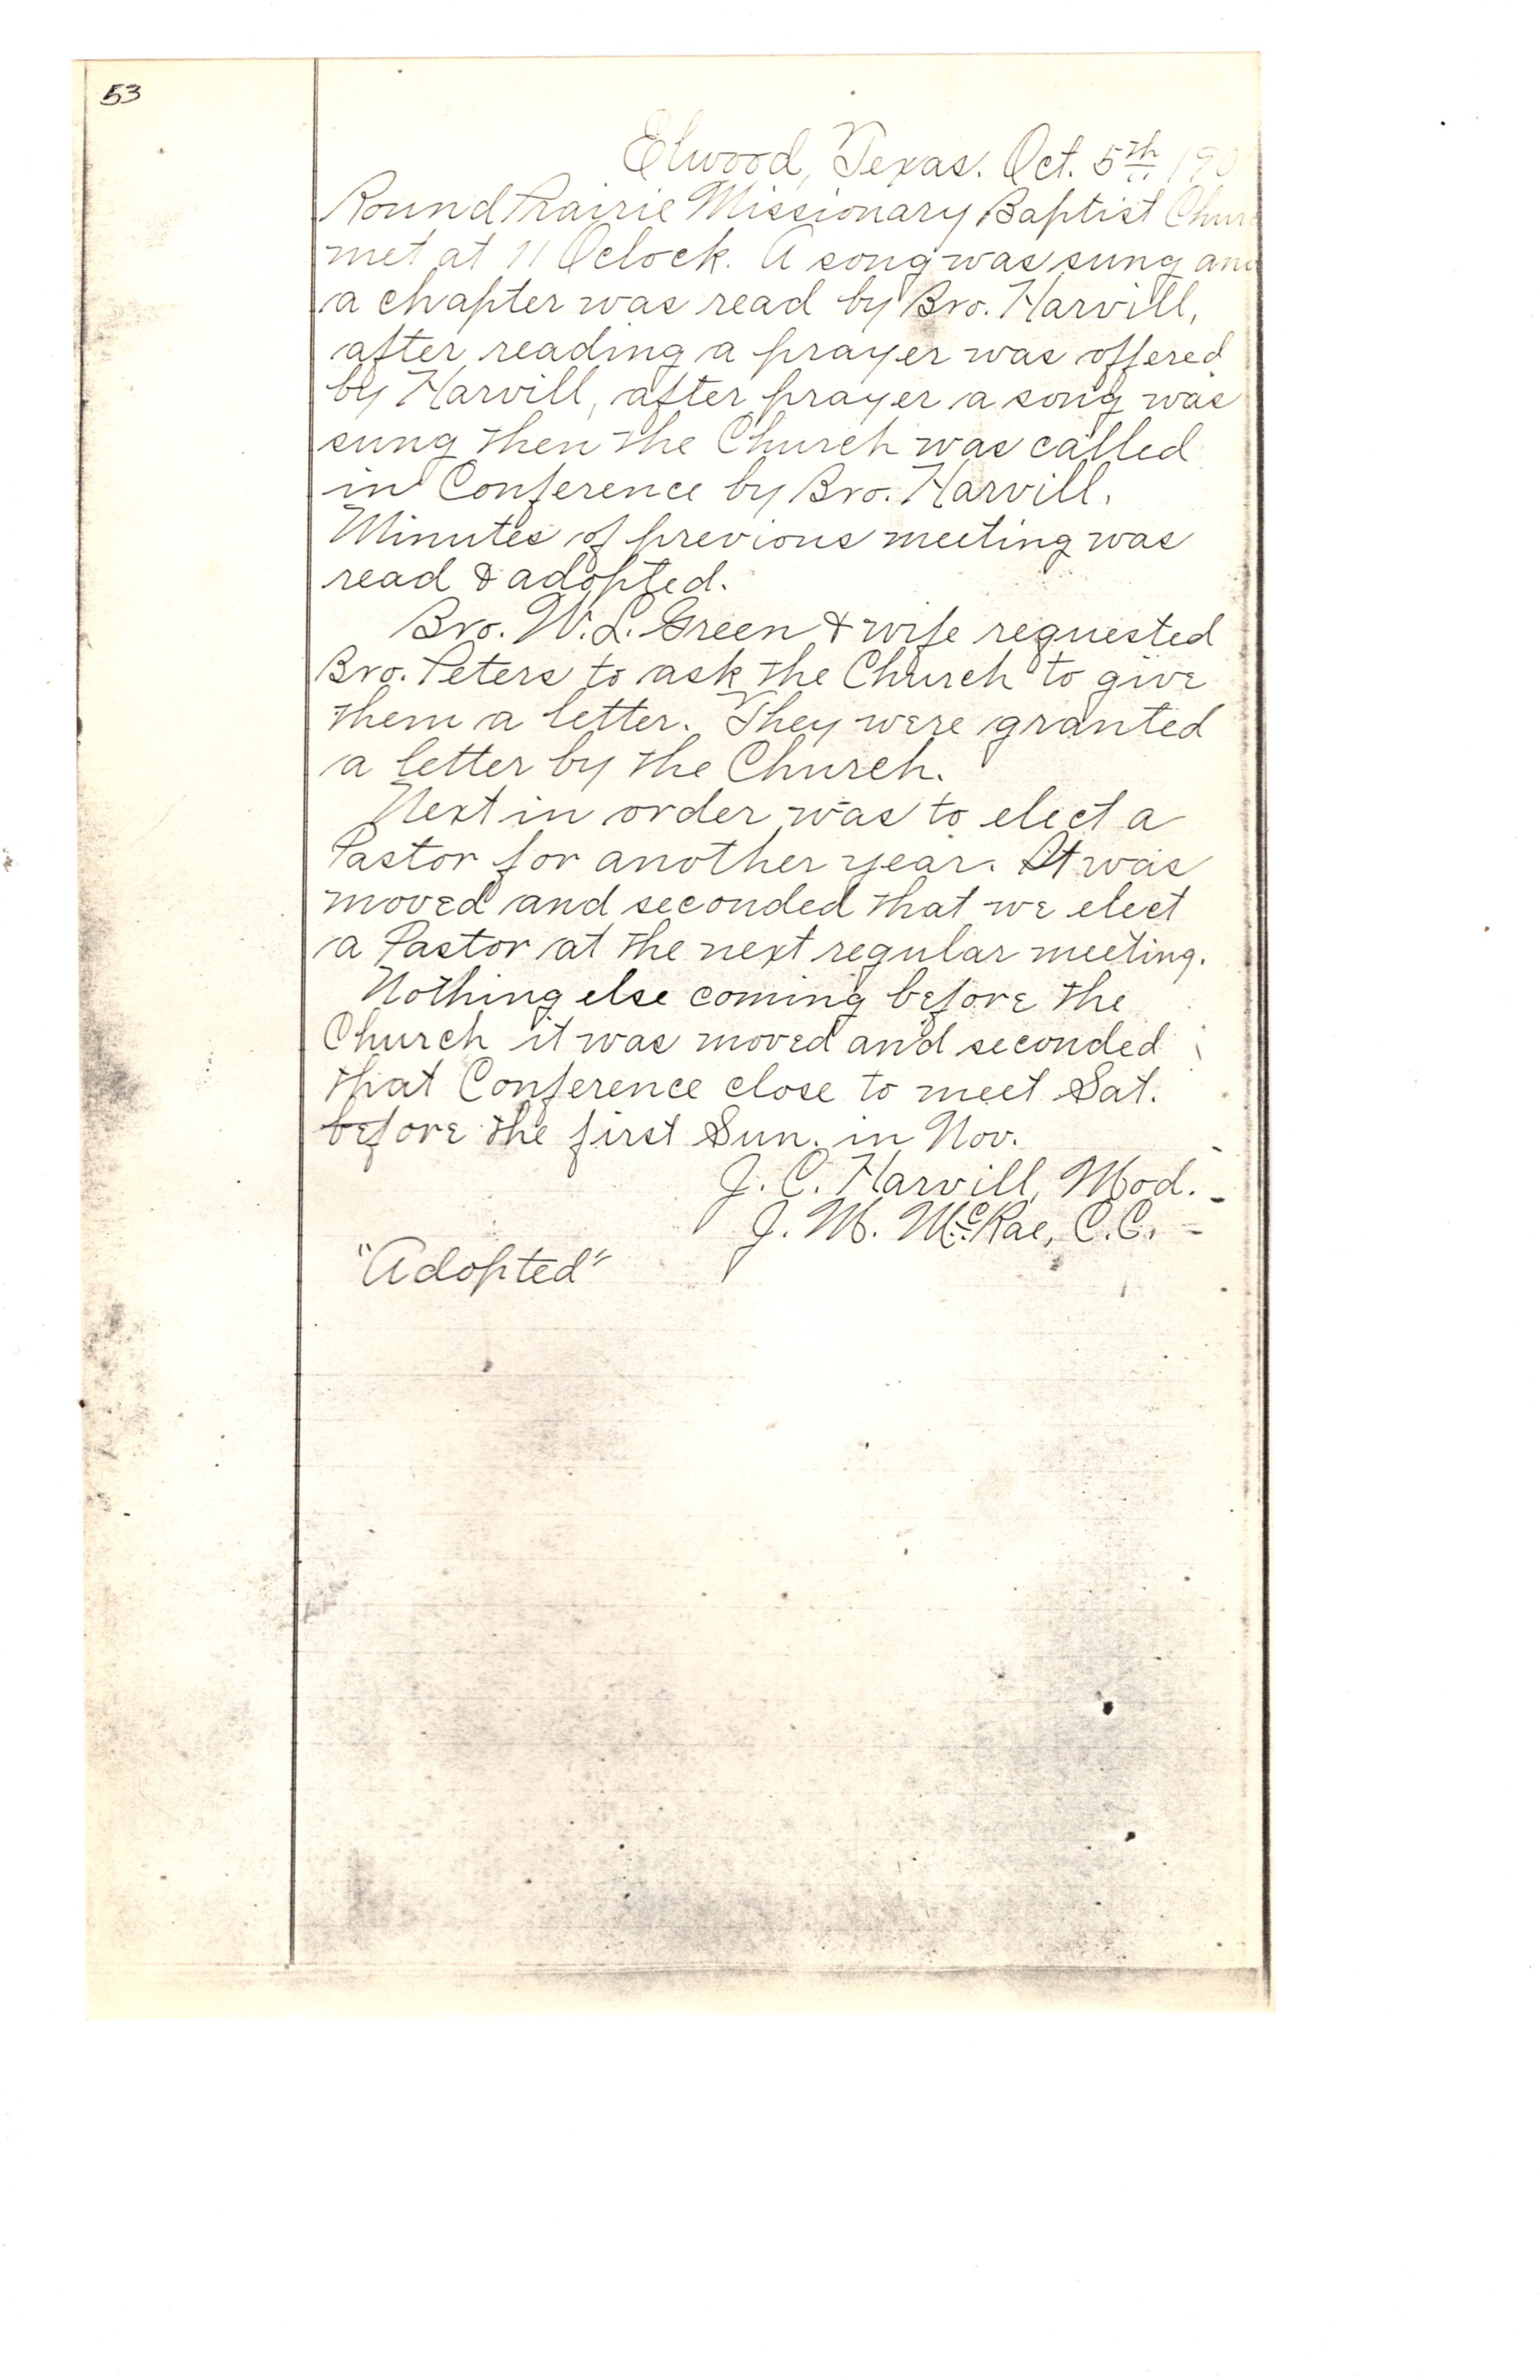 53
Elwood, Texas. Oct. 5th 190
Round Prairie Missionary Baptist Chur
met at 11 Oclock. A song was sung an
a chapter was read by Bro. Harvill,
after reading a prayer was offered
by Harvill, after prayer a song was
sung then the Church was called
in Conference by Bro. Harvill.
Minutes of previous meeting was
read & adopted.
Bro. W. L. Green & wife requested
Bro. Peters to ask the Church to give
them a letter. They were granted
a letter by the Church.
Next in order was to elect a
Pastor for another year. It was
moved and seconded that we elect
a Pastor at the next regular meeting.
Nothing else coming before the
Church it was moved and seconded
that Conference close to meet Sat.
before the first Sun. in Nov.
J. C. Harvill, Mod.
J. M. McRae, C.C.
"Adopted"